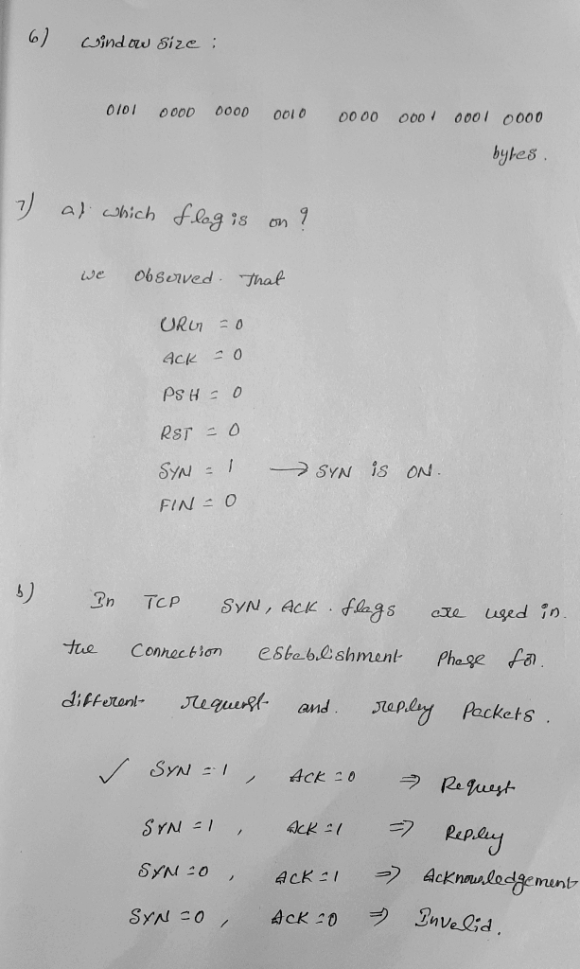 6) Window Size :
0101 0000 0000 0010 0000 0001 0001 0000
bytes.
7) a) which flag is on ?
we observed. That
URG = 0
ACK = 0
PSH = 0
RST = 0
SYN = 1 → SYN is ON.
FIN = 0
b) In TCP SYN, ACK. flags are used in.
the Connection establishment Phase for.
different request and. reply Packets.
✓ SYN = 1, ACK = 0 ⇒ Request
SYN = 1, ACK = 1 ⇒ Reply
SYN = 0, ACK = 1 ⇒ Acknowledgement
SYN = 0, ACK = 0 ⇒ Invalid.